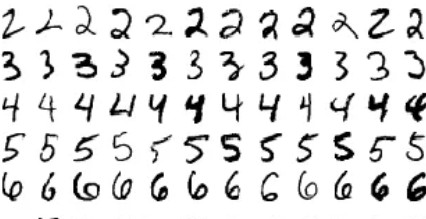 2 2 2 2 2 2 2 2 2 2 2 2
3 3 3 3 3 3 3 3 3 3 3 3
4 4 4 4 4 4 4 4 4 4 4 4
5 5 5 5 5 5 5 5 5 5 5 5
6 6 6 6 6 6 6 6 6 6 6 6